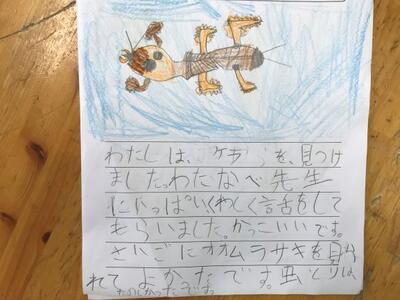 わたしは、ケラを、見つけ
ました。わたなべ先生
にいっぱいくわしく話をして
もらいました。かっこいいです。
さいごにオオムラサキを見
れてよかたです。虫とりは、
たのしかったです。